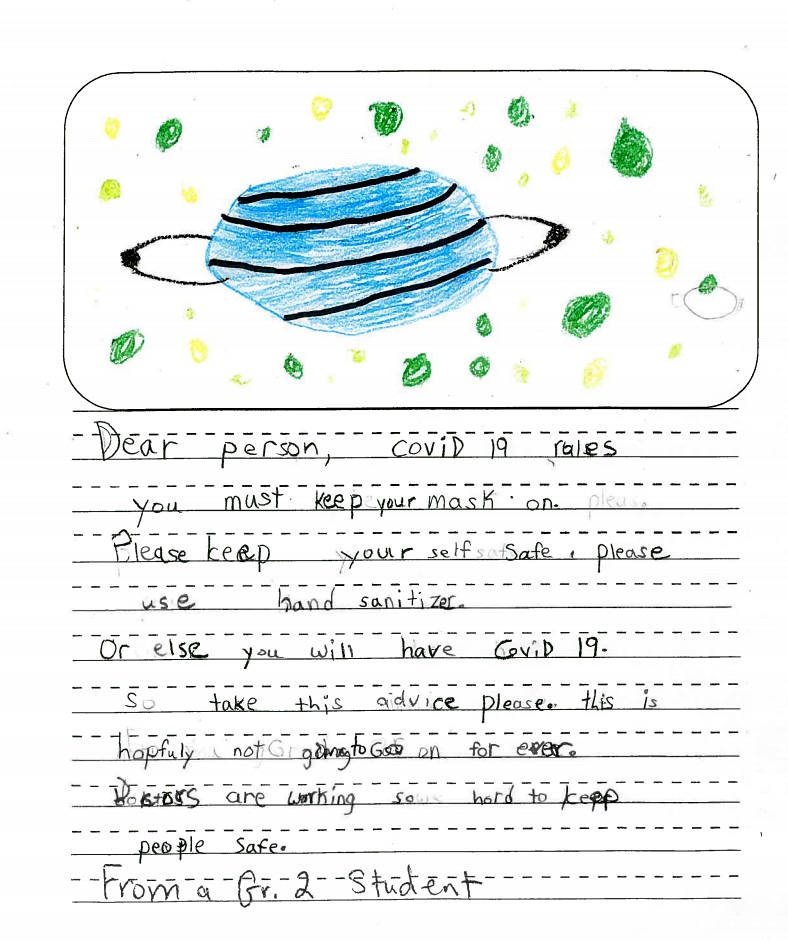 Dear person, covid 19 rules
you must keep your mask on.
Please keep your self safe, please
use hand sanitizer.
Or else you will have Covid 19.
So take this advice please. this is
hopfuly not going to Goo on for ever.
Doctors are working so hard to keep
people safe.
From a Gr. 2 Student